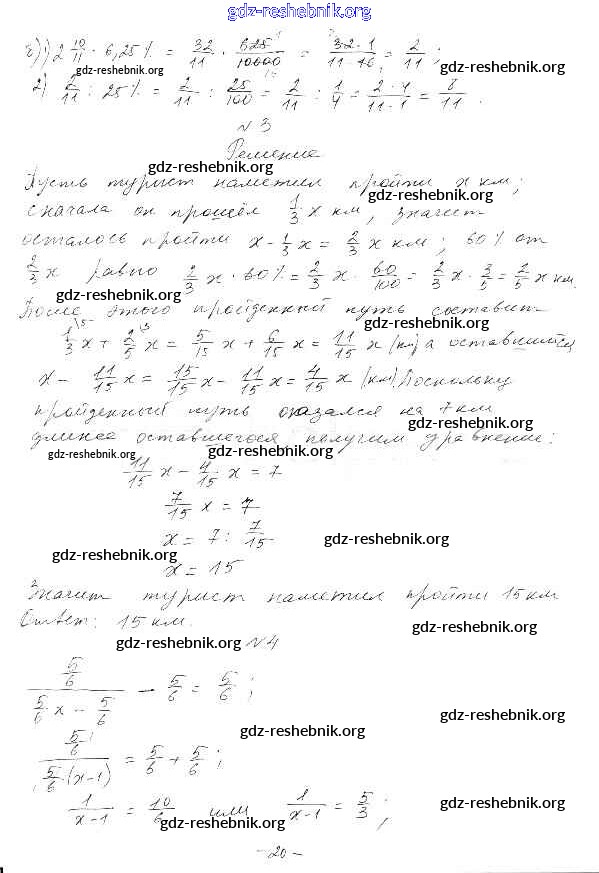 gdz-reshebnik.org
г) 1) 2 10/11 · 6,25% = 32/11 · 625/10000 = 32·1/11·16 = 2/11;
gdz-reshebnik.org gdz-reshebnik.org
2) 2/11 : 25% = 2/11 : 25/100 = 2/11 : 1/4 = 2·4/11·1 = 8/11.
№3
Решение
gdz-reshebnik.org
Пусть турист наметил пройти x км;
gdz-reshebnik.org
сначала он прошёл 1/3 x км, значит
осталось пройти x - 1/3 x = 2/3 x км; 60% от
2/3 x равно 2/3 x · 60% = 2/3 x · 60/100 = 2/3 x · 3/5 = 2/5 x км.
gdz-reshebnik.org
После этого пройденный путь составит
gdz-reshebnik.org
1/3 x + 2/5 x = 5/15 x + 6/15 x = 11/15 x (км) а оставшийся
x - 11/15 x = 15/15 x - 11/15 x = 4/15 x (км). Поскольку
пройденный путь оказался на 7 км
gdz-reshebnik.org
длиннее оставшегося получим уравнение:
gdz-reshebnik.org gdz-reshebnik.org
11/15 x - 4/15 x = 7
7/15 x = 7
x = 7 : 7/15
gdz-reshebnik.org gdz-reshebnik.org
x = 15
Значит турист наметил пройти 15 км
Ответ: 15 км.
gdz-reshebnik.org
gdz-reshebnik.org №4
5/6 / (5/6 x - 5/6) - 5/6 = 5/6;
gdz-reshebnik.org
gdz-reshebnik.org
5/6 / (5/6 (x-1)) = 5/6 + 5/6;
1/(x-1) = 10/6 или 1/(x-1) = 5/3;
gdz-reshebnik.org gdz-reshebnik.org
- 20 -